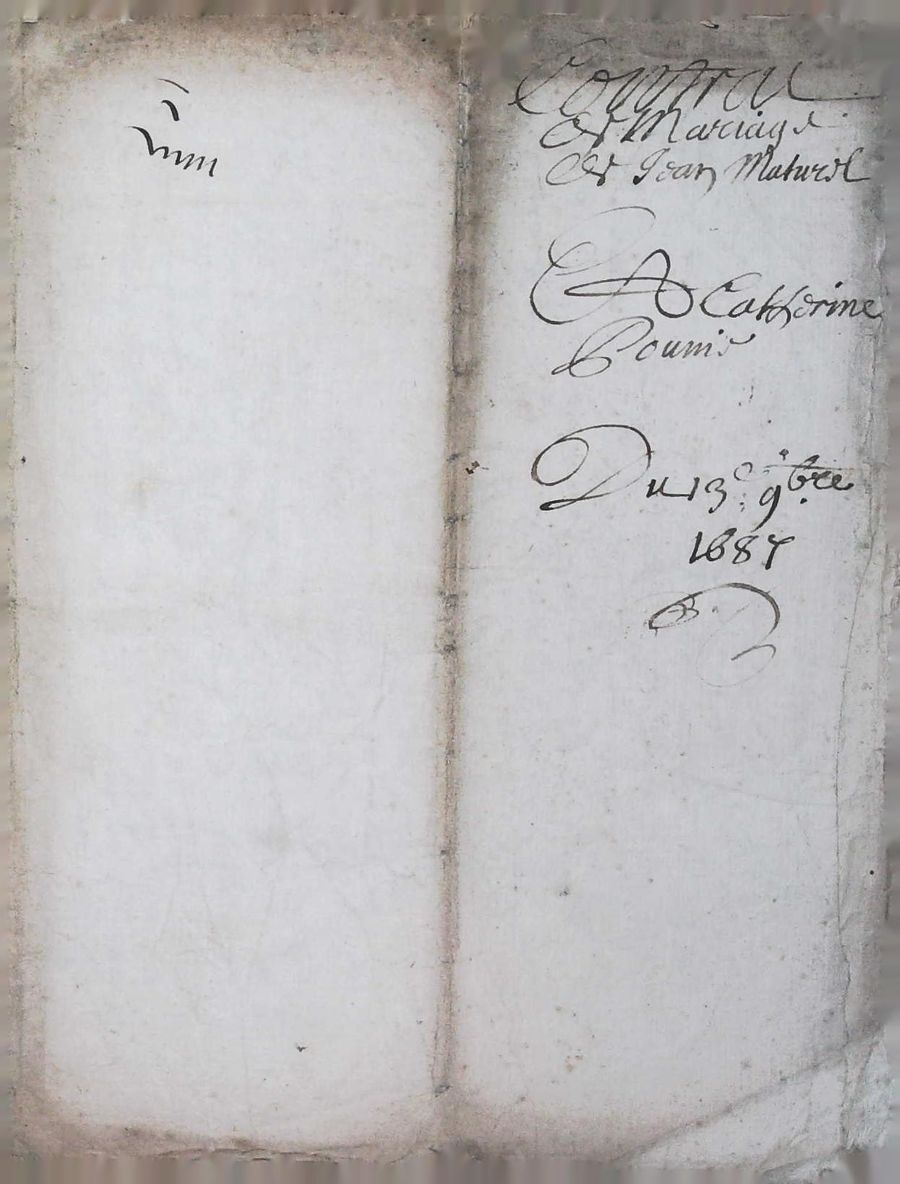 Contract
de Mariage
de Jean Maturel
Et Catherine
Pounie
Du 13e 9bre
1687